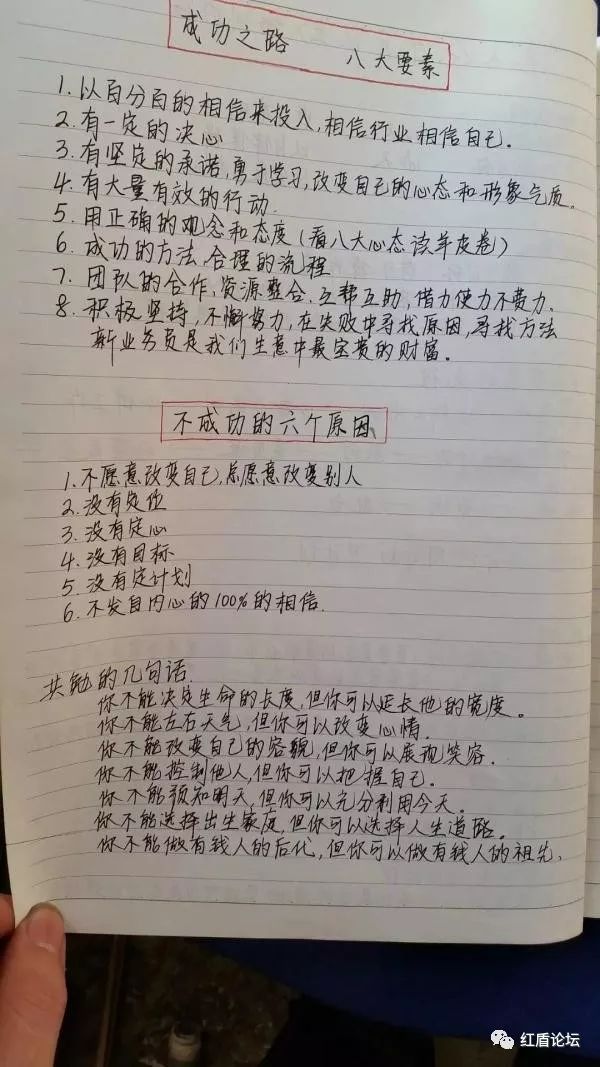 成功之路 八大要素
1. 以百分百的相信来投入,相信行业相信自己.
2. 有一定的决心
3. 有坚定的承诺,勇于学习,改变自己的心态和形象气质。
4. 有大量有效的行动.
5. 用正确的观念和态度(看八大心态读羊皮卷)
6. 成功的方法、合理的流程
7. 团队的合作,资源整合.互帮互助,借力使力不费力.
8. 积极坚持,不懈努力,在失败中寻找原因,寻找方法
新业务员是我们生意中最宝贵的财富。
不成功的六个原因
1. 不愿意改变自己,总愿意改变别人
2. 没有定位
3. 没有定心
4. 没有目标
5. 没有定计划
6. 不发自内心的100%的相信.
共勉的几句话.
你不能决定生命的长度,但你可以延长他的宽度。
你不能左右天气,但你可以改变心情.
你不能改变自己的容貌,但你可以展现笑容.
你不能控制他人,但你可以把握自己.
你不能预知明天,但你可以充分利用今天。
你不能选择出生家庭,但你可以选择人生道路.
你不能做有钱人的后代,但你可以做有钱人的祖先.
红盾论坛